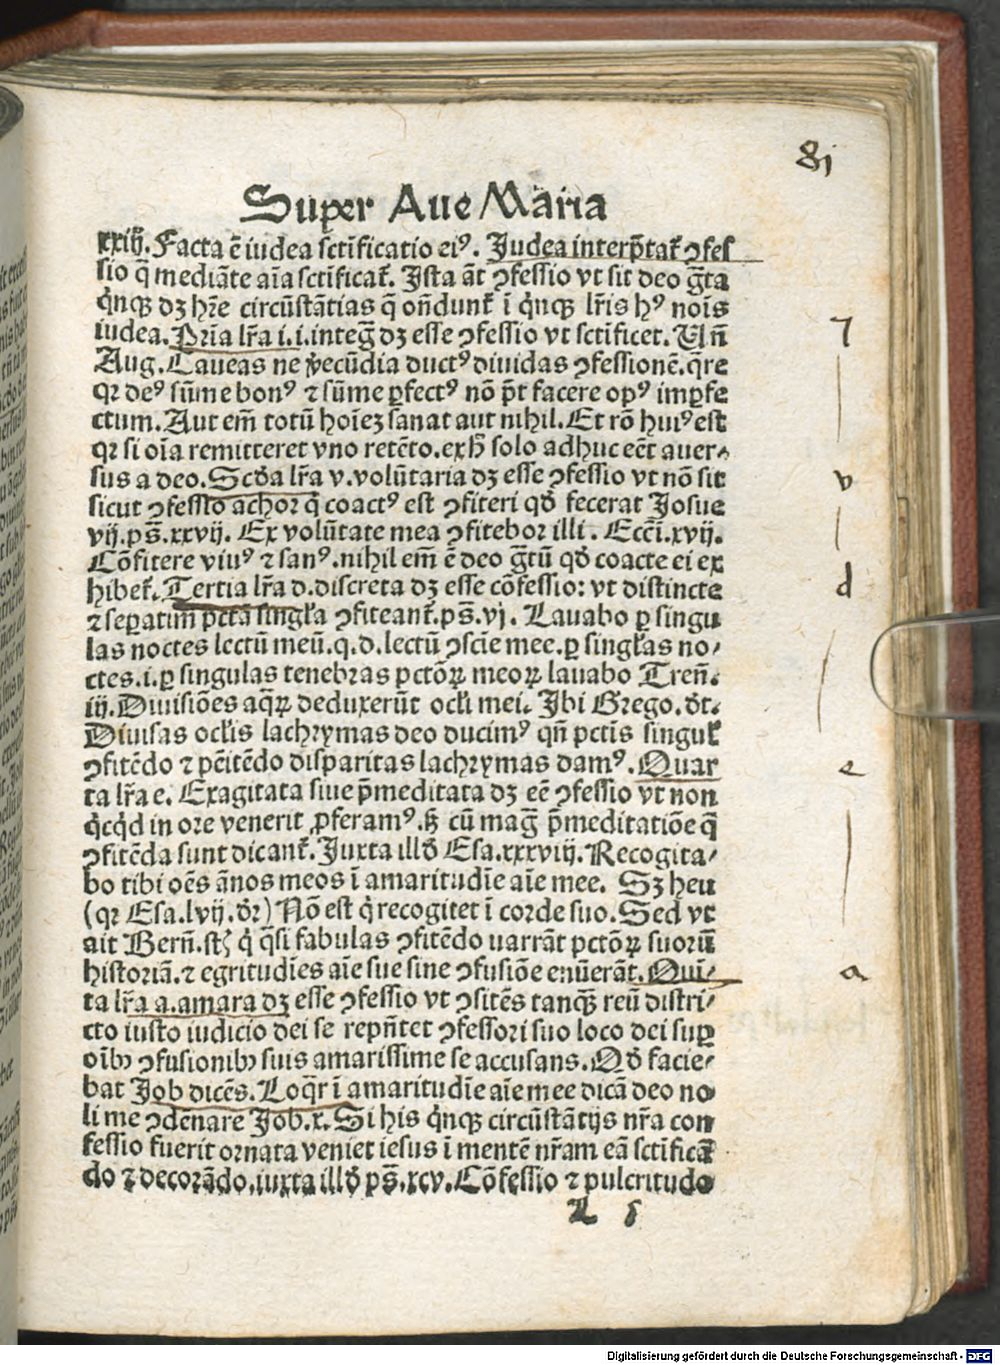 81
Super Aue Maria
xxiij. Facta ē iudea sctificatio eiꝰ. Judea interp̄tat̄ ꝯfes
sio q̄ mediāte aīa sctificat̄. Ista āt ꝯfessio vt sit deo ḡta
q̇nqꝫ dꝫ hr̄e circūstātias q̄ on̄dunt̄ ī q̇nqꝫ lr̄is hꝰ nois̄
iudea. Prīa lr̄a i. i. inteḡ dꝫ esse ꝯfessio vt sctificet. Vn̄
Aug. Caueas ne v̓ecūdia ductꝰ diuidas ꝯfessionē. q̄re
qꝛ deꝰ sūme bonꝰ ⁊ sūme ꝑfectꝰ nō p̄t facere opꝰ imꝑfe
ctum. Aut em̄ totū hoīeꝫ sanat aut nihil. Et rō huiꝰ est
qꝛ si oīa remitteret vno retēto. ex hͦ solo adhuc eēt auer⸗
sus a deo. Scd̓a lr̄a v. volūtaria dꝫ esse ꝯfessio vt nō sit
sicut ꝯfessio achor q̇ coactꝰ est ꝯfiteri qd̓ fecerat Josue
vij. ps̄. xxvij. Ex volūtate mea ꝯfitebor illi. Eccī. xvij.
Cōfitere viuꝰ ⁊ sanꝰ. nihil em̄ ē deo ḡtū qd̓ coacte ei ex
hibet̄. Tertia lr̄a d. discreta dꝫ esse cōfessio: vt distincte
⁊ seꝑatim pctā singl̓a ꝯfiteant̄. ps̄. vj. Lauabo ꝑ singu
las noctes lectū meū. q. d. lectū ꝯscīe mee. ꝑ singl̓as no⸗
ctes. i. ꝑ singulas tenebras pctōꝝ meoꝝ lauabo Tren̄.
iij. Diuisiōes aq̄ꝝ deduxerūt ocl̓i mei. Ibi Grego. d̓t.
Diuisas ocl̓is lachrymas deo ducimꝰ qn̄ pctīs singul̓
ꝯfitēdo ⁊ pēitēdo disparitas lachrymas damꝰ. Quar
ta lr̄a e. Exagitata siue p̄meditata dꝫ eē ꝯfessio vt non
q̇cq̇d in ore venerit ꝓferamꝰ. sꝫ cū maḡ p̄meditatiōe q̄
ꝯfitēda sunt dicant̄. Juxta illd̓ Esa. xxxviij. Recogita⸗
bo tibi oēs ānos meos ī amaritudīe aīe mee. Sꝫ heu
(qꝛ Esa. lvij. d̓r) Nō est q̇ recogitet ī corde suo. Sed vt
ait Bern̄. st̄ q̇ q̄si fabulas ꝯfitēdo narrāt pctōꝝ suorū
historiā. ⁊ egritudīes aīe sue sine ꝯfusiōe enūerāt. Quī⸗
ta lr̄a a. amara dꝫ esse ꝯfessio vt ꝯfitēs tanqꝫ reū distri⸗
cto iusto iudicio dei se repn̄tet ꝯfessori suo loco dei suꝑ
oībꝰ ꝯfusionibꝰ suis amarissime se accusans. Qd̓ facie⸗
bat Job dicēs. Loq̄r ī amaritudīe aīe mee dicā deo no
li me ꝯdēnare Job. x. Si his q̇nqꝫ circūstātijs nr̄a con
fessio fuerit ornata veniet iesus ī mentē nr̄am eā sctificā
do ⁊ decorādo. iuxta illd̓ ps̄. xcv. Cōfessio ⁊ pulcritudo
L
i
v
d
e
a
Digitalisierung gefördert durch die Deutsche Forschungsgemeinschaft - DFG